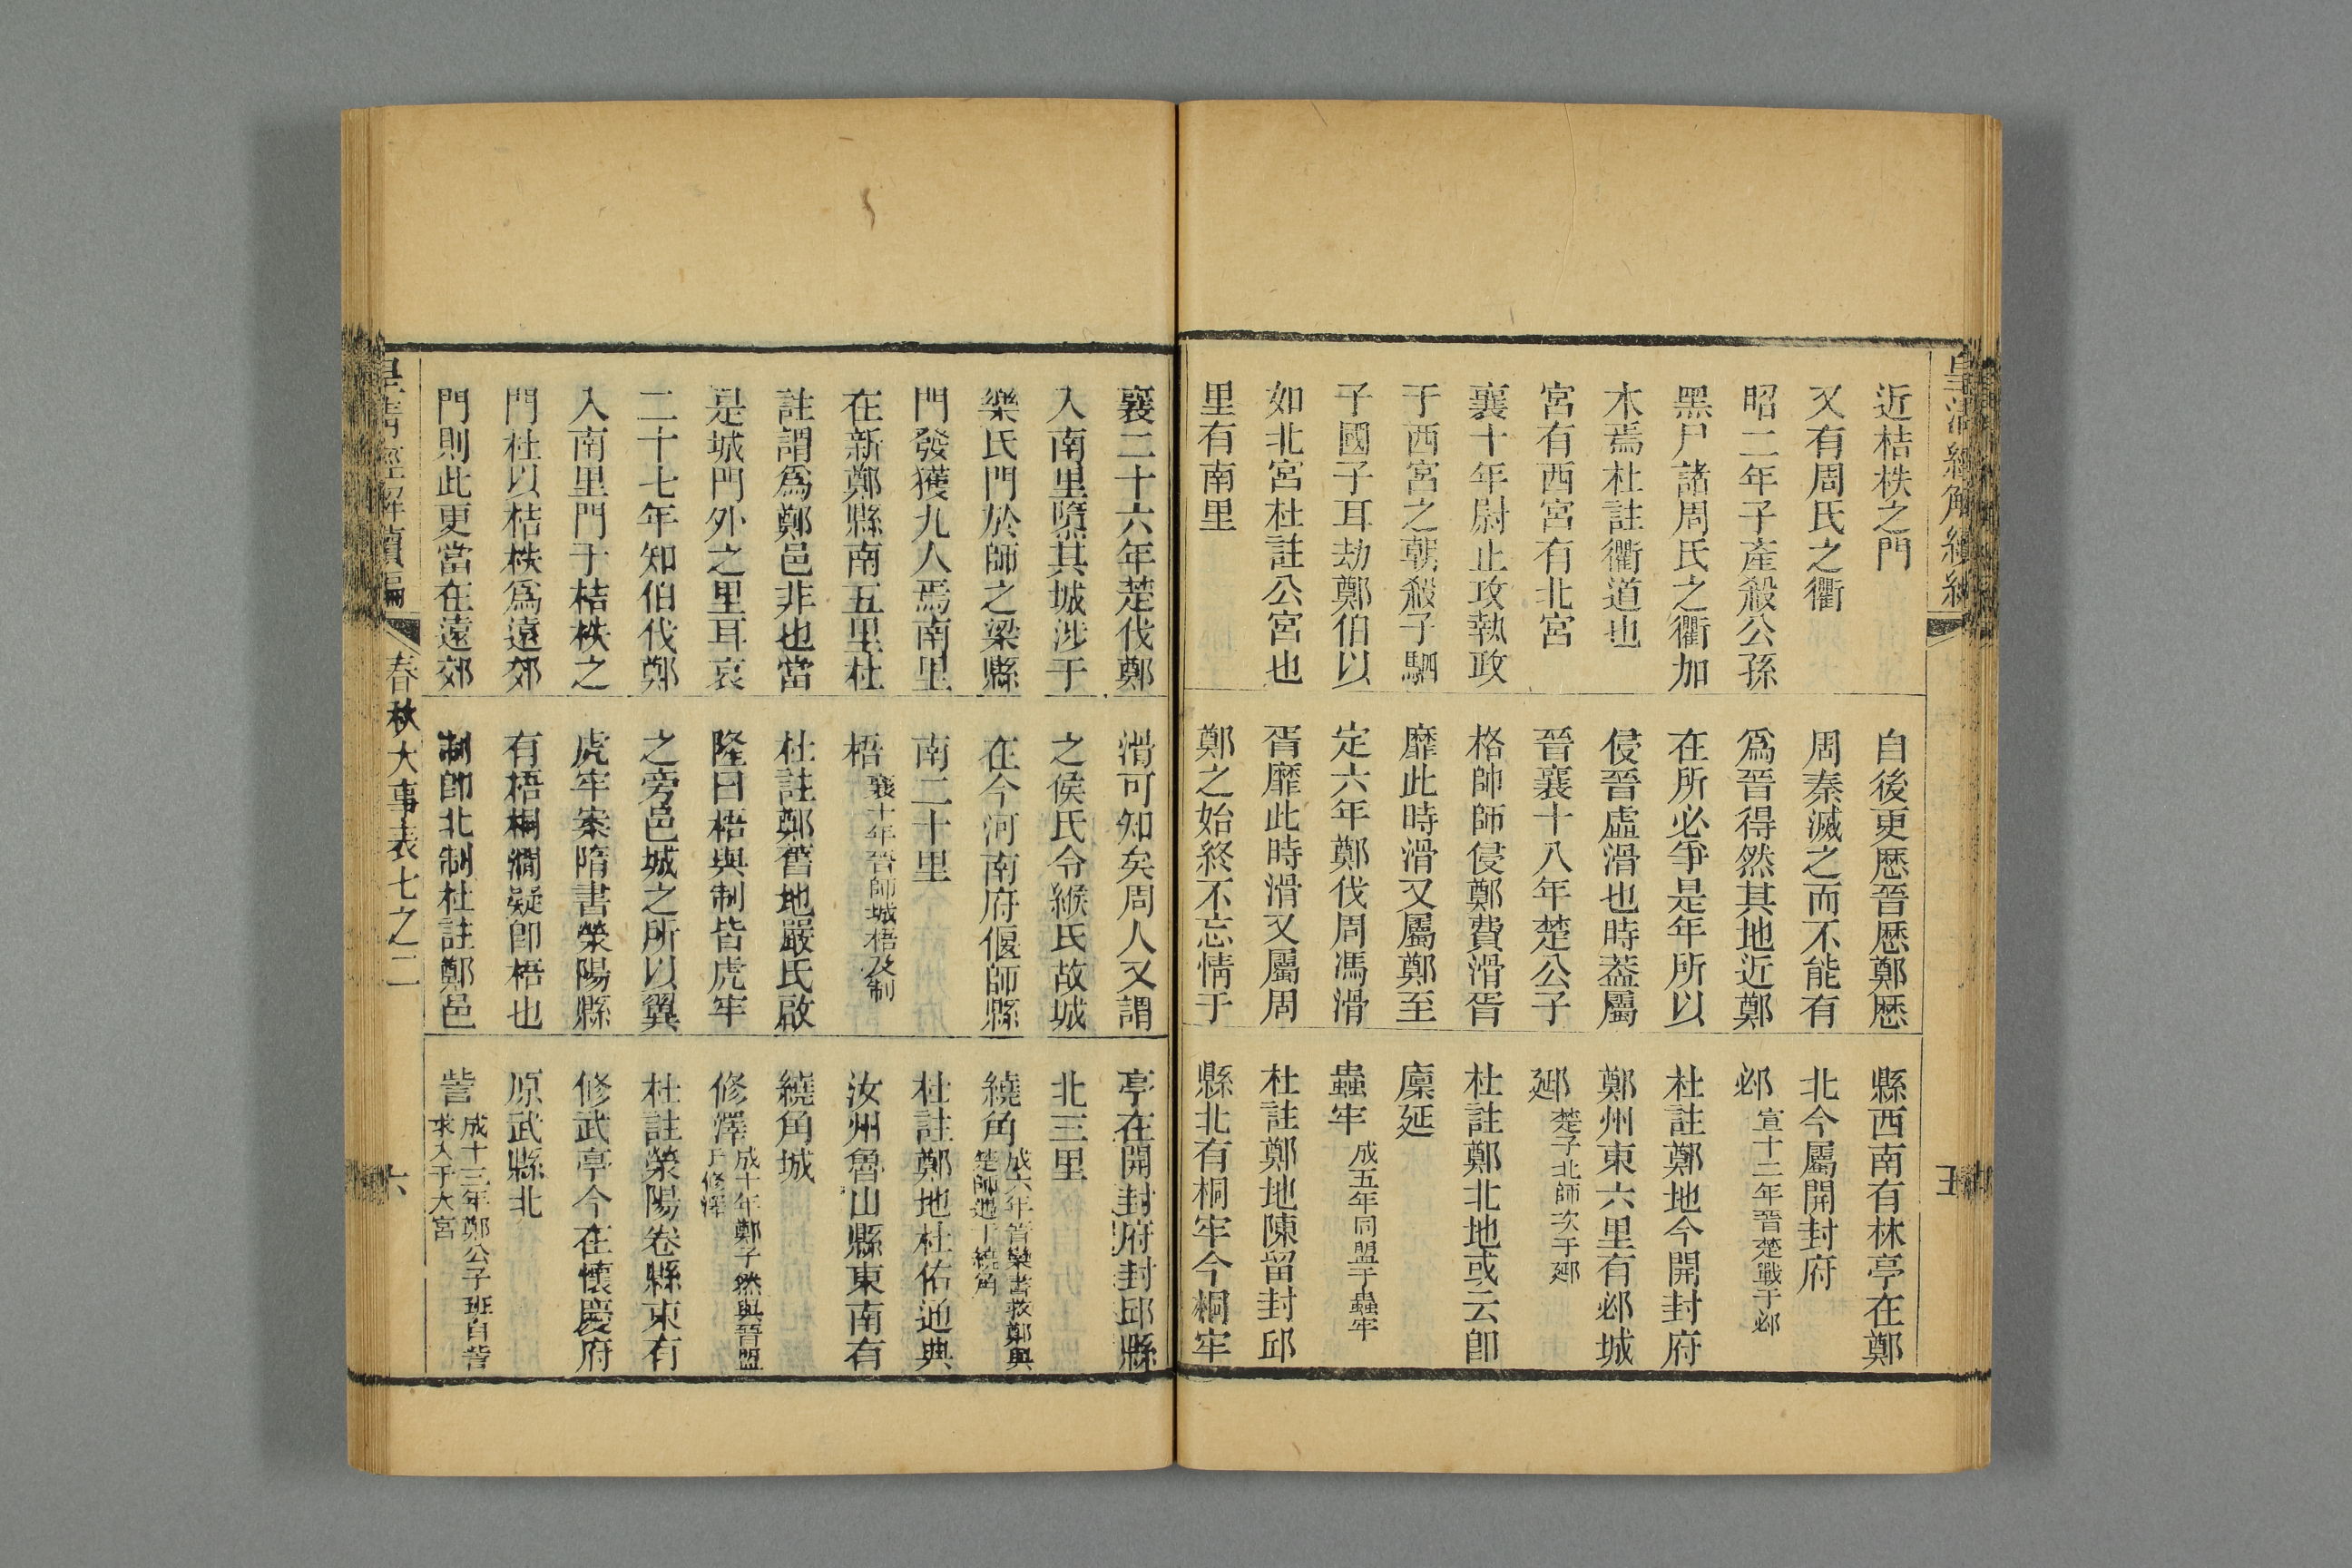 皇清經解續編
五
近桔柣之門
又有周氏之衢
昭二年子產殺公孫
黑尸諸周氏之衢加
木焉杜註衢道也
宮有西宮有北宮
襄十年尉止攻執政
于西宮之朝殺子駟
子國子耳劫鄭伯以
如北宮杜註公宮也
里有南里
自後更歷晉歷鄭歷
周秦滅之而不能有
爲晉得然其地近鄭
在所必爭是年所以
侵晉虛滑也時葢屬
晉襄十八年楚公子
格帥師侵鄭費滑胥
靡此時滑又屬鄭至
定六年鄭伐周馮滑
胥靡此時滑又屬周
鄭之始終不忘情于
縣西南有林亭在鄭
北今屬開封府
邲宣十二年晉楚戰于邲
杜註鄭地今開封府
鄭州東六里有邲城
郔楚子北師次于郔
杜註鄭北地或云卽
廩延
蟲牢成五年同盟于蟲牢
杜註鄭地陳留封邱
縣北有桐牢今桐牢
襄二十六年楚伐鄭
入南里隳其城涉于
樂氏門於師之梁縣
門發獲九人焉南里
在新鄭縣南五里杜
註謂爲鄭邑非也當
是城門外之里耳哀
二十七年知伯伐鄭
入南里門于桔柣之
門杜以桔柣爲遠郊
門則此更當在遠郊
滑可知矣周人又謂
之侯氏今緱氏故城
在今河南府偃師縣
南二十里
梧襄十年晉師城梧及制
杜註鄭舊地嚴氏啟
隆曰梧與制皆虎牢
之旁邑城之所以翼
虎牢案隋書滎陽縣
有梧桐澗疑卽梧也
制卽北制杜註鄭邑
亭在開封府封邱縣
北三里
繞角成六年晉欒書救鄭與
楚師遇于繞角
杜註鄭地杜佑通典
汝州魯山縣東南有
繞角城
修澤成十年鄭子然與晉盟
于修澤
杜註滎陽卷縣東有
修武亭今在懷慶府
原武縣北
訾成十三年鄭公子班自訾
求入于大宮
皇清經解續編
春秋大事表七之二
六